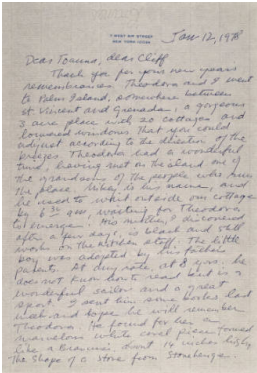 7 WEST 81st STREET
NEW YORK 10024
Jan 12, 1978
Dear Joanna, dear Cliff
Thank you for your new years
remembrances. Theodora and I went
to Palm Island, somewhere between
St Vincent and Grenada, a gorgeous
3 acre place with 20 cottages and
louvered windows that you could
adjust according to the direction of the
breezes. Theodora had a wonderful
time, having met on the island one of
the grandsons of the people who run
the place. Mikey is his name, and
he used to wait outside our cottage
by 6:30 am, waiting for Theodora
to emerge. His mother, I discovered
after a few days, is black and still
works on the kitchen staff. The little
boy was adopted by his father's
parents. At any rate, at 8 yrs. he
does not know how to read but is a
wonderful sailor and a great
sport. I sent him some books last
week and hope he will remember
Theodora. He found for her a
marvelous white coral piece formed
like a brownie. About 1½ inches high,
the shape of a stone from Stonehenge.